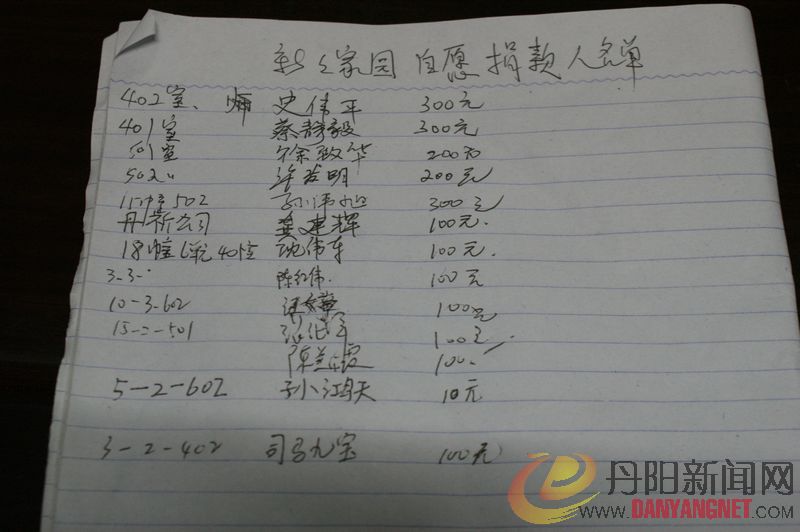 新之家园自愿捐款人名单
402室、 史伟平 300元
401室 蔡静毅 300元
501室 徐致华 200元
502〃 许发明 200元
11幢502 孙伟旭 300元
丹新公司 龚建辉 100元.
18幢 402 沈伟车 100元.
3-3- 陈红伟. 100元
10-3-602 汪 100元
15-2-501 张 100元
陈兰霞 100.
5-2-602 孙小江 10元
3-2-402 司马九宝 100元
丹阳新闻网
DANYANGNET.COM